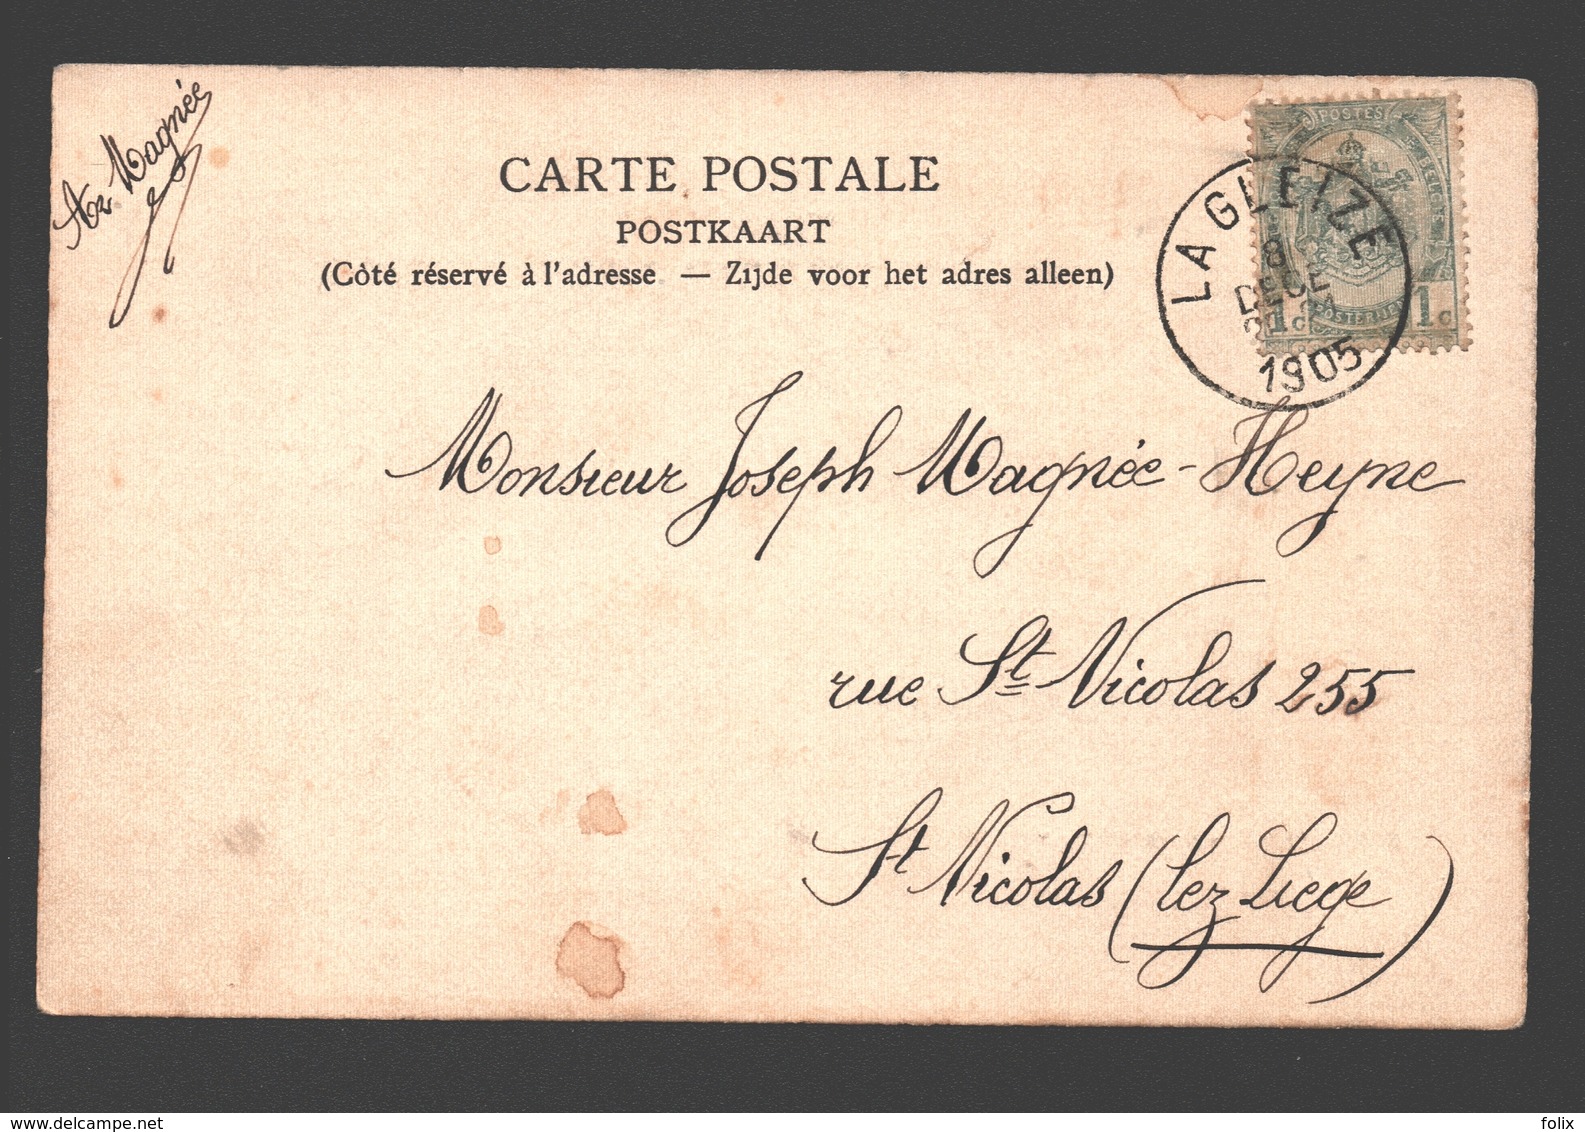 Magnée
CARTE POSTALE
POSTKAART
(Côté réservé à l'adresse — Zijde voor het adres alleen)
POSTES
BELGIQUE
POSTERIJEN
1c 1c
LA GLEIZE
8
DECE
1905
Monsieur Joseph Magnée-Heyne
rue St Nicolas 255
St Nicolas (lez Liege)
© www.delcampe.net
folix